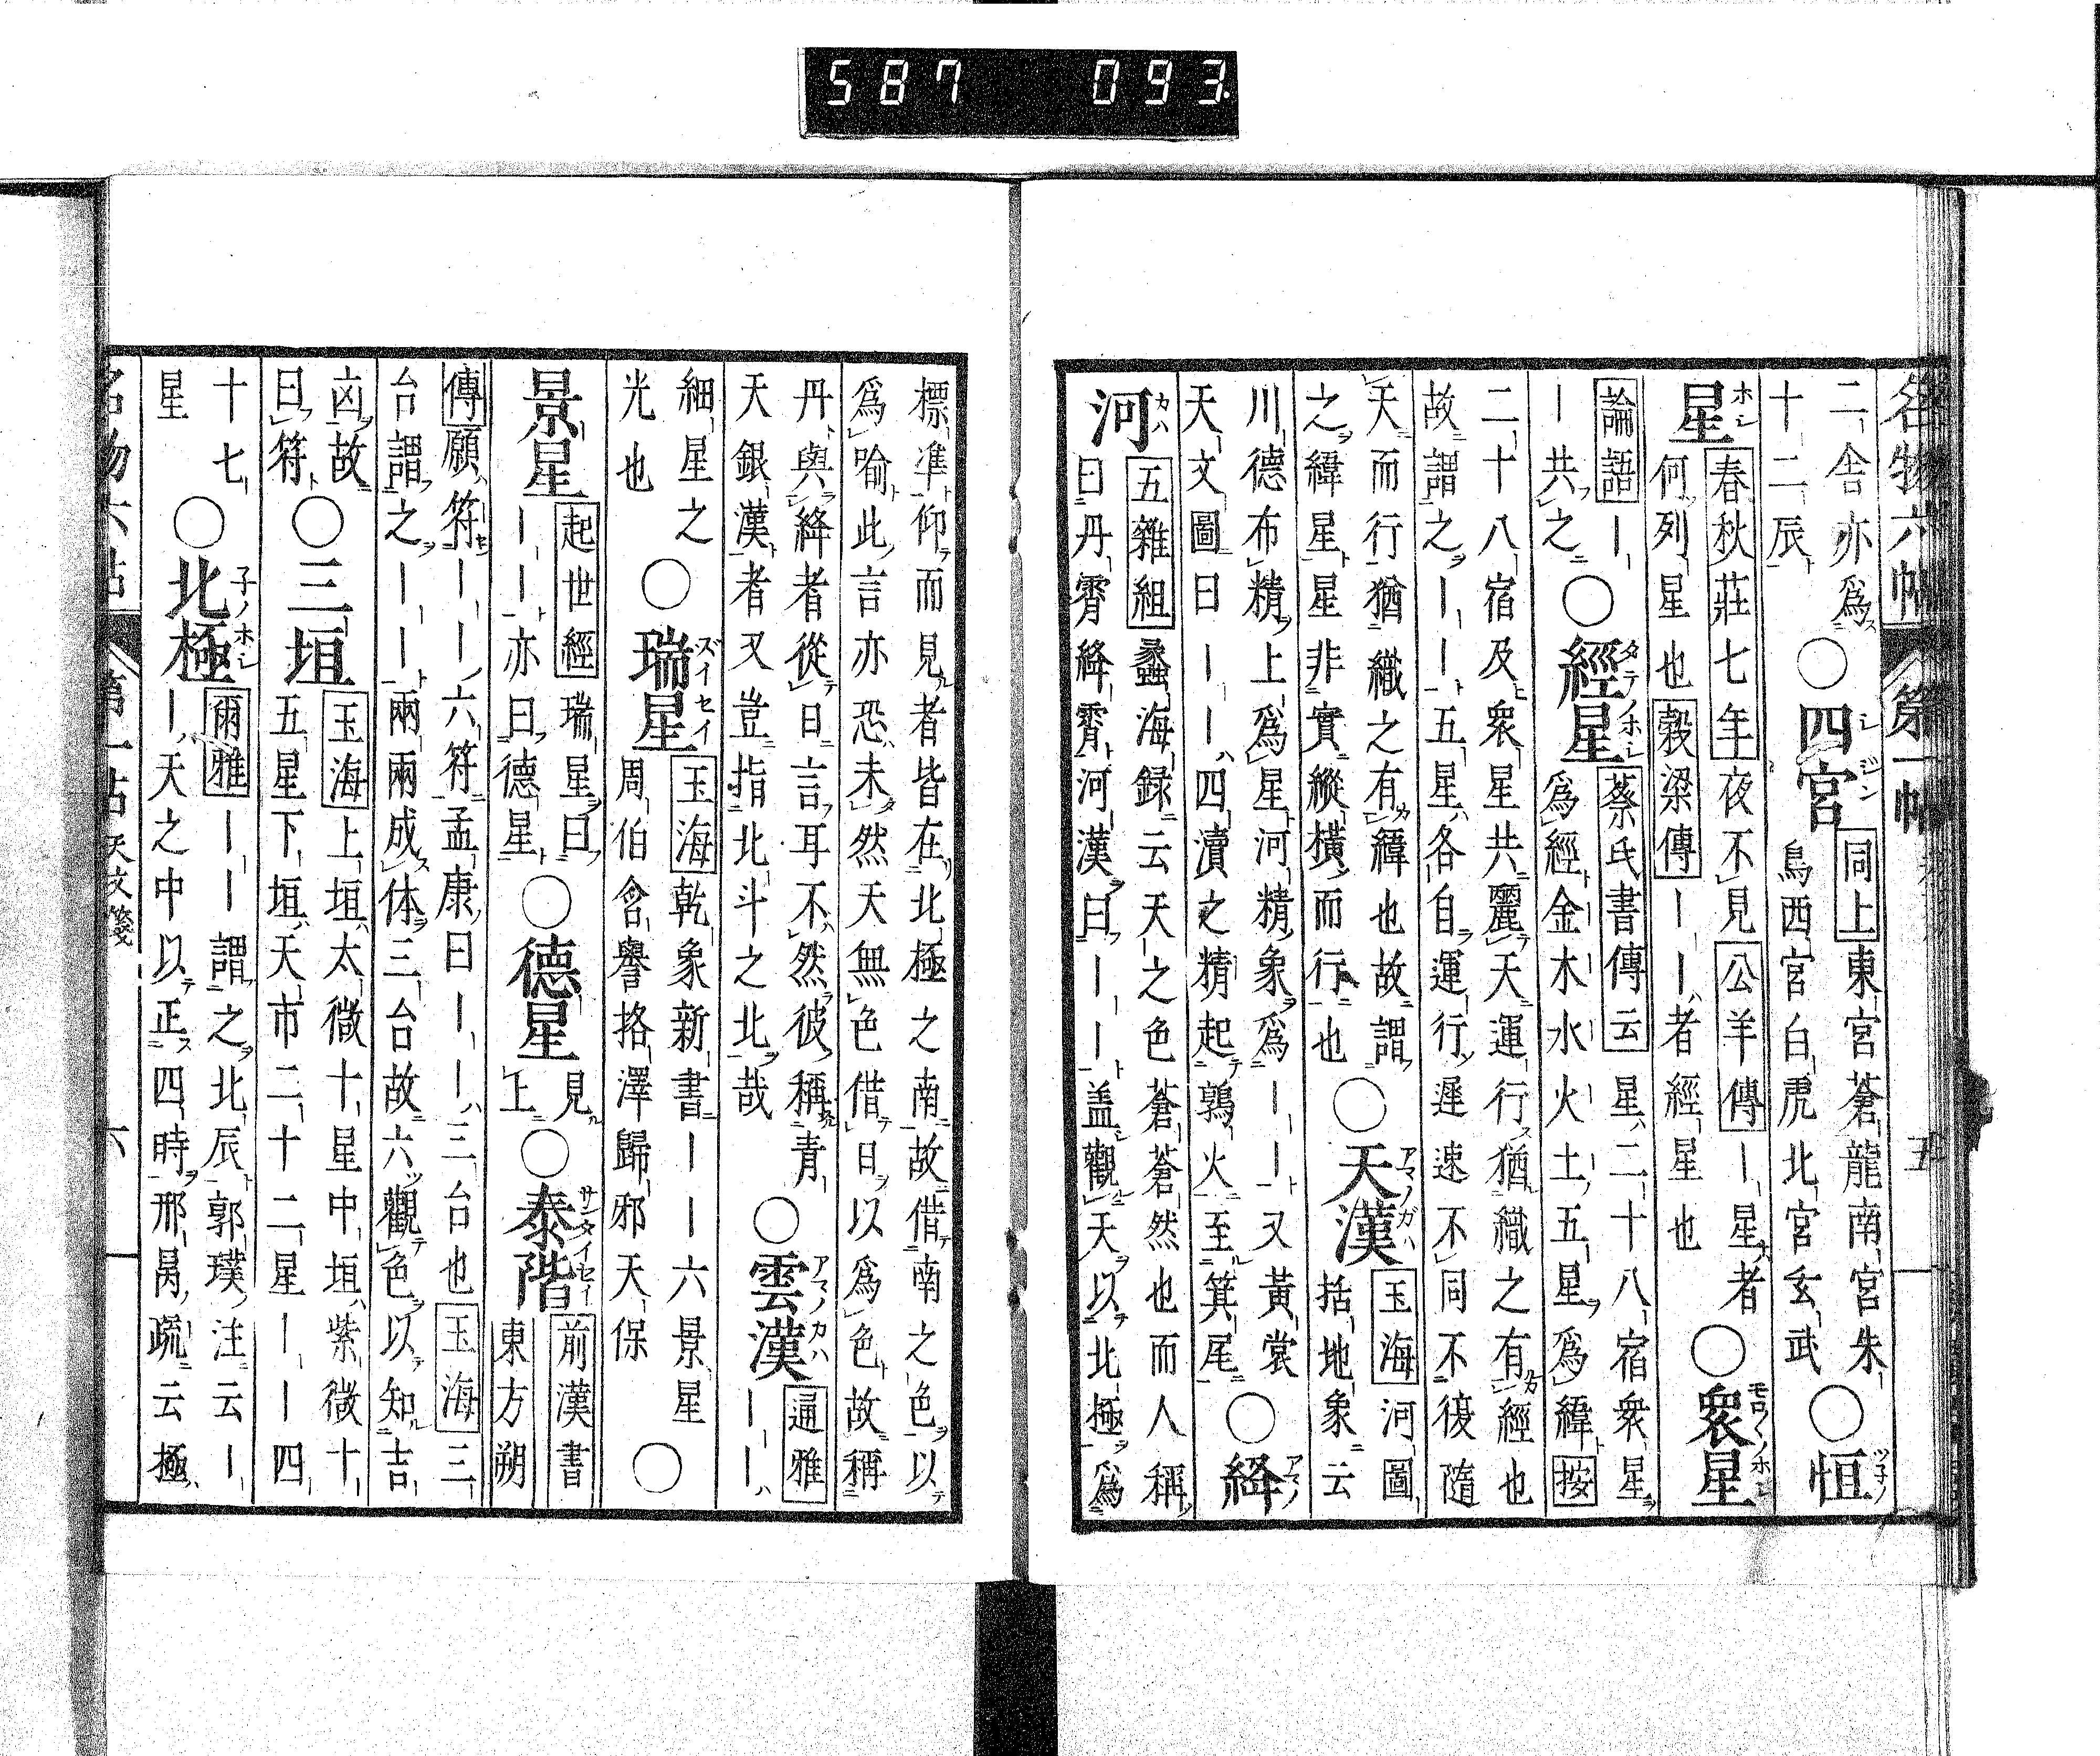 587 093.
名物六帖 第一帖 五
二舍亦爲
十二辰
○四宮
同上東宮蒼龍南宮朱
鳥西宮白虎北宮玄武
○恒
星
春秋莊七年夜不見公羊傳ー星者
何列星也穀梁傳ーー者經星也
○衆星
論語ー
ー共之
○經星
蔡氏書傳云星二十八宿衆星
爲經金木水火土五星爲緯按
二十八宿及衆星共麗天運行猶織之有經也
故謂之ーー五星各自運行遲速不同不復隨
天而行猶織之有緯也故謂
之緯星星非實縱橫而行也
○天漢
玉海河圖
括地象云
川德布精上爲星河精象爲ーー又黃裳
天文圖曰ーー四瀆之精起鶉火至箕尾
○絳
河
五雜組蠡海録云天之色蒼蒼然也而人稱
曰丹霄絳霄河漢曰ーー盖觀天以北極爲
標準仰而見者皆在北極之南故借南之色以
爲喻此言亦恐未然天無色借日以爲色故稱
丹與絳者從日言耳不然彼稱青
天銀漢者又豈指北斗之北哉
○雲漢
通雅
ーー
細星之
光也
○瑞星
玉海乾象新書ーー六景星
周伯含譽挌澤歸邪天保
○
景星
起世經瑞星曰
ーー亦曰德星
○德星
見
上
○泰階
前漢書
東方朔
傳願符ーー六符孟康曰ーー三台也玉海三
台謂之ーー兩兩成体三台故六觀色以知吉
凶故
曰符
○三垣
玉海上垣太微十星中垣紫微十
五星下垣天市二十二星ーー四
十七
星
○北極
爾雅ーー謂之北辰郭璞注云ー
ー天之中以正四時邢昺疏云極
名物六帖 第一帖 天文箋 六